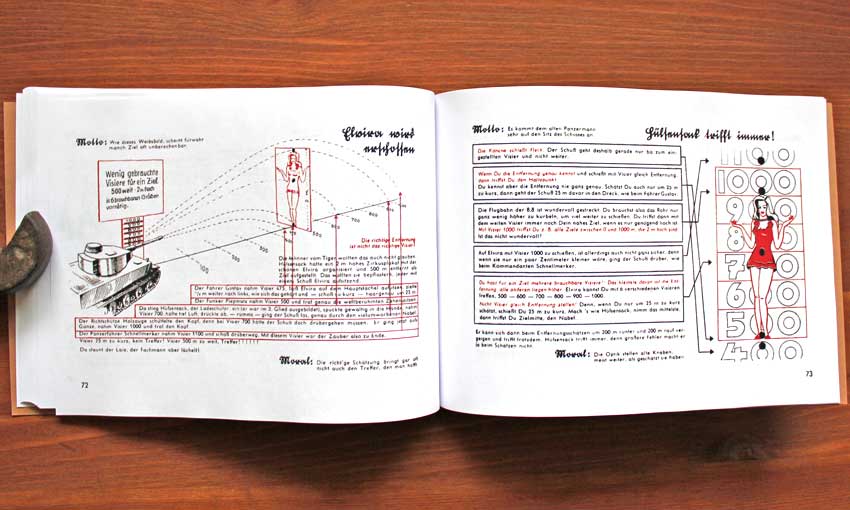 Motto: Wie dieses Weibsbild, scheint fürwahr
manch Ziel oft unberechenbar.
Elvira wird
erschossen
Wenig gebrauchte
Visiere für ein Ziel
500 weit - 2 m hoch
in 6 brauchbaren Größen
vorrätig.
Die richtige Entfernung
ist nicht das richtige Visier!
400
500
600
700
800
900
Die Männer vom Tiger wollten das auch nicht glauben.
Hülsensack hatte ein 2 m hohes Zirkusplakat mit der
schönen Elvira organisiert und 500 m entfernt als
Ziel aufgestellt. Das wollten sie bepflastern, jeder mit
einem Schuß Elvira aufs
Der Fahrer Gustav nahm Visier 475, ließ Elvira auf dem Hauptstachel aufsitzen, zielte
½ m weiter nach links, wie sich das gehört und — schoß zu kurz — haargenau um 25 m.
Der Funker Piepmatz nahm Visier 500 und traf genau die weltberühmten
Da stieg Hülsensack, der Ladeschütze,
Visier 700, holte tief Luft, drückte ab, — rumms — ging der Schuß los, genau durch den vielumworbenen Nabel.
Der Richtschütze Holzauge schüttelte den Kopf, denn bei Visier 700 hätte der Schuß doch drübergehen müssen. Er ging jetzt aufs
Ganze, nahm Visier 1000 und traf den Kopf.
Der Panzerführer Schnellmerker nahm Visier 1100 und schoß drüberweg. Mit diesem Visier war der Zauber also zu Ende.
Visier 25 m zu kurz, kein Treffer! Visier 500 m zu weit, Treffer!!!!!!
Da staunt der Laie, der Fachmann aber lächelt!
Moral: Die richt'ge Schätzung bringt gar oft
nicht auch den Treffer, den man hofft.
72
Motto: Es kommt dem alten Panzermann
sehr auf den Sitz des Schusses an.
Hülsensack trifft immer!
Die Kanone schießt Fleck. Der Schuß geht deshalb gerade nur bis zum ein-
gestellten Visier und nicht weiter.
Wenn Du die Entfernung genau kennst und schießt mit Visier gleich Entfernung,
dann triffst Du den Haltepunkt!
Du kennst aber die Entfernung nie ganz genau. Schätzt Du auch nur um 25 m
zu kurz, dann geht der Schuß 25 m davor in den Dreck, wie beim Fahrer Gustav.
Die Flugbahn der 8,8 ist wundervoll gestreckt. Du brauchst also das Rohr nur
ganz wenig höher zu kurbeln, um viel weiter zu schießen. Du triffst dann mit
dem weiten Visier immer noch Dein nahes Ziel, wenn es nur genügend hoch ist.
Mit Visier 1000 triffst Du z. B. alle Ziele zwischen 0 und 1000 m, die 2 m hoch sind.
Ist das nicht wundervoll?
Auf Elvira mit Visier 1000 zu schießen, ist allerdings auch nicht ganz sicher, denn
wenn sie nur ein paar Zentimeter kleiner wäre, ging der Schuß drüber, wie
beim Kommandanten Schnellmerker.
Du hast für ein Ziel mehrere brauchbare Visiere! Das kleinste davon ist die Ent-
fernung, alle anderen liegen höher. Elvira kannst Du mit 6 verschiedenen Visieren
treffen. 500 — 600 — 700 — 800 — 900 — 1000.
Nicht Visier gleich Entfernung stellen! Denn, wenn Du nur um 25 m zu kurz
schätzt, schießt Du 25 m zu kurz. Mach 's wie Hülsensack, nimm das mittelste,
dann triffst Du Zielmitte, den Nabel!
Er kann sich dann beim Entfernungsschätzen um 200 m runter und 200 m rauf ver-
geigen und trifft trotzdem. Hülsensack trifft immer, denn größere Fehler macht er
beim Schätzen nicht.
Moral: Die Optik stellen alte Knaben,
meist weiter, als geschätzt sie haben.
1100
1000
900
800
700
600
500
400
73